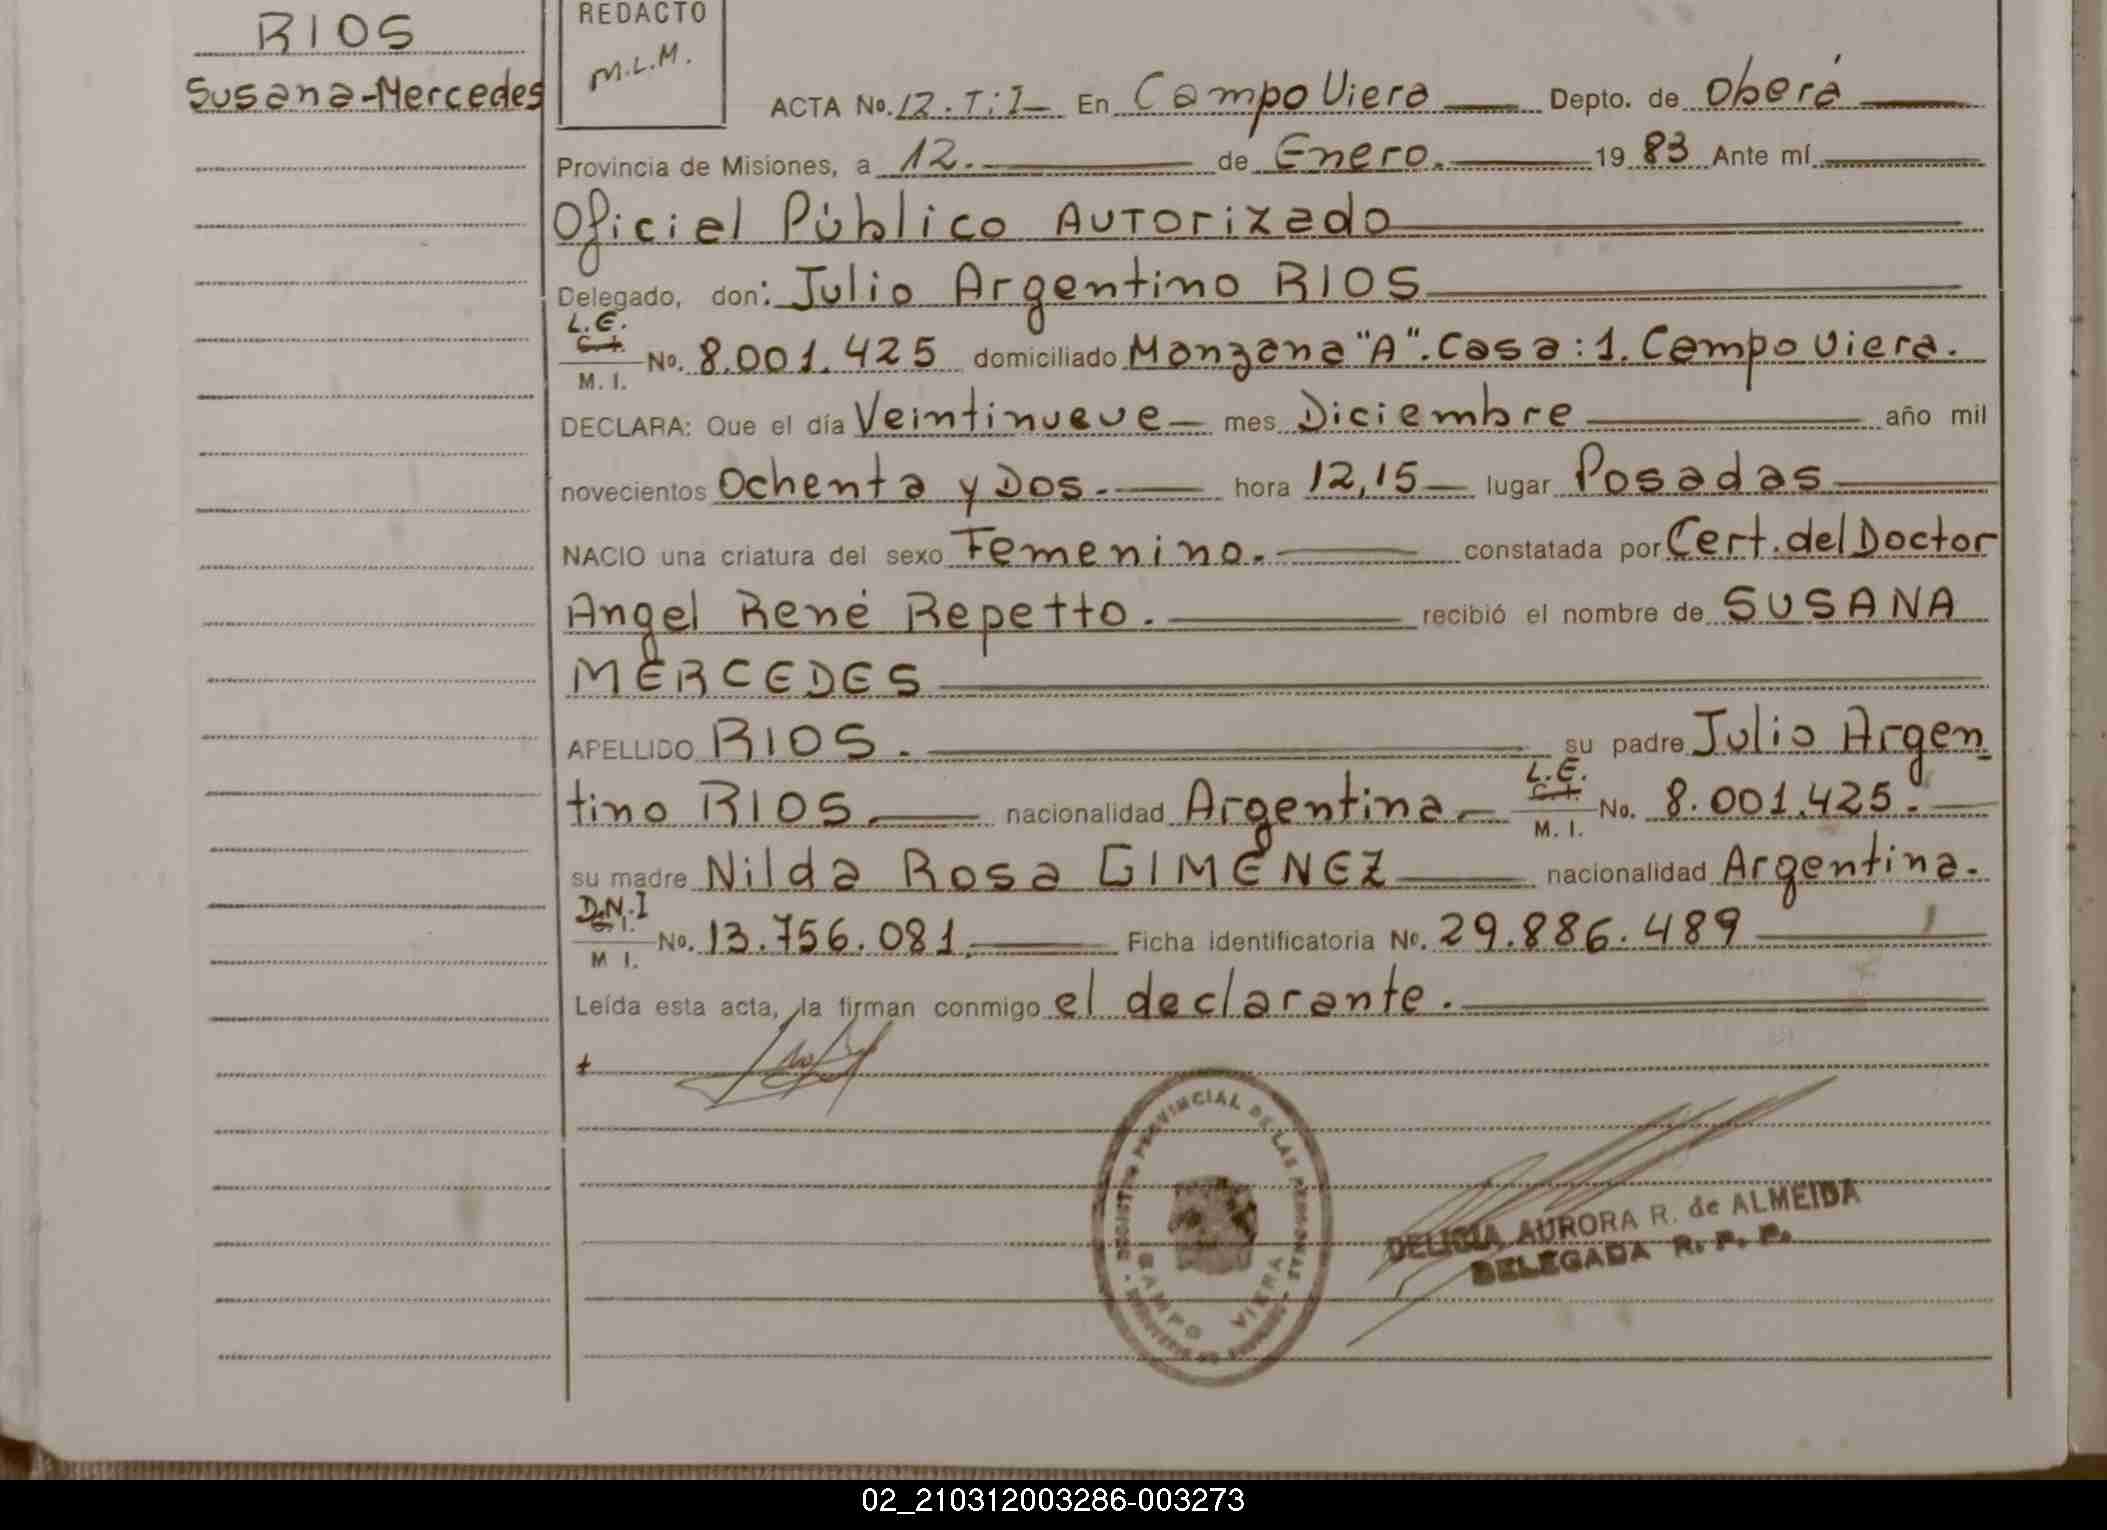 RIOS
Susana-Mercedes
REDACTO
M.L.M.
ACTA No. 12. T: I En Campo Viera Depto. de Oberá
Provincia de Misiones, a 12. de Enero. 19 83 Ante mí
Oficial Público AUTorizado
Delegado, don: Julio Argentino RIOS
L.E.
C.I.
M. I.
No. 8.001.425 domiciliado Manzana "A". Casa: 1. Campo Viera.
DECLARA: Que el día Veintinueve mes Diciembre año mil
novecientos Ochenta y Dos. hora 12,15 lugar Posadas
NACIO una criatura del sexo Femenino. constatada por Cert. del Doctor
Angel René Repetto. recibió el nombre de SUSANA
MERCEDES
APELLIDO RIOS. su padre Julio Argen
tino RIOS. nacionalidad Argentina L.E. C.I. M. I. No. 8.001.425.
su madre Nilda Rosa GIMÉNEZ nacionalidad Argentina.
D.N.I C.I. M I. No. 13.756.081. Ficha identificatoria No. 29.886.489
Leída esta acta, la firman conmigo el declarante.
REGISTRO PROVINCIAL DE LAS PERSONAS
CAMPO VIERA
DELICIA AURORA R. de ALMEIDA
DELEGADA R. P. P.
02_210312003286-003273